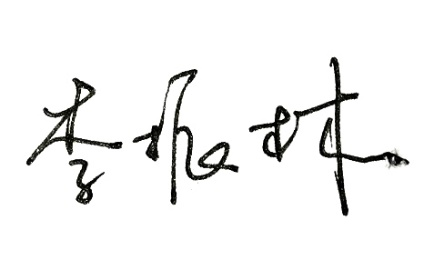 李振林